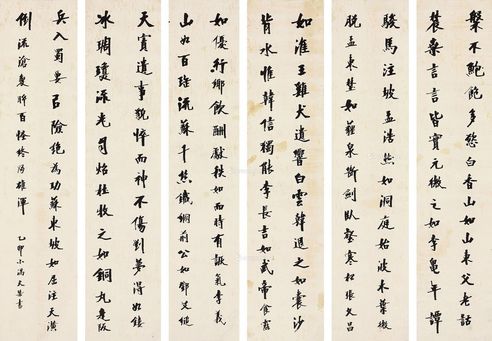 槃不飽飽多慾白香山如山東父老話
農桑言言皆實元微之如李龜年譚
駿馬注坡孟浩然如洞庭始波木葉微
脫孟東埜如薶泉斷劍臥壑寒松張文昌
如淮王雞犬遺響白雲韓退之如囊沙
背水惟韓信獨能李長吉如武帝食露
如優行鄉飲酬獻秩如而時有詼氣李義
山如百珤流蘇千絲鐵網荊公如鄧艾縋
天寶遺事貌悴而神不傷劉夢得如鏤
冰琱瓊流光自炤杜牧之如銅丸走阪
兵入蜀要以險絕為功蘇東坡如屈注天潢
倒流滄變眩百怪終歸雄渾 乙卯小滿 書